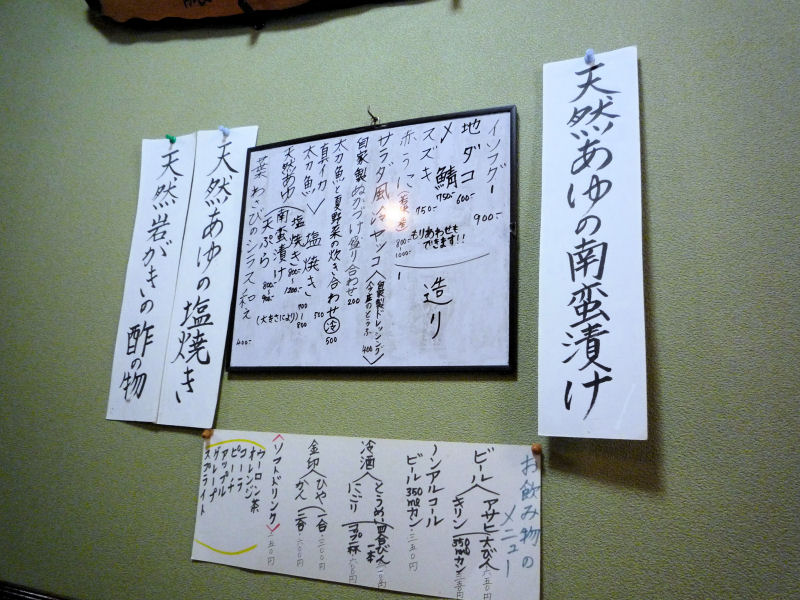 天然あゆの南蛮漬け
イソフグー 900-
地ダコ 600-
〆鯖 750-
スズキ 750-
赤うに
800-
1000-
もりあわせも
できます!!
造り
サラダ風冷ヤッコ
自家製ドレッシング
400
自家製ぬかづけ盛り合わせ 200
太刀魚と夏野菜の炊き合わせ 冷 500
真イカ
太刀魚
塩焼き
500
700
800
天然あゆ
塩焼き 800~1200-
南蛮漬け
天ぷら 800-
900-
(大きさにより)
葉わさびのシラス和え 400-
天然あゆの塩焼き
天然岩がきの酢の物
お飲み物の
メニュー
ビール
アサヒ大びん 六五〇円
キリン350mlカン
ノンアルコール
ビール350mlカン 三五〇円
冷酒
とうめい四合びん一本
にごり コップ一杯 六〇〇円
金印
ひや 一合 三〇〇円
かん 二合 六〇〇円
〈ソフトドリンク〉 二五〇円
ウーロン茶
オレンジ
コーラ
ピーチ
アップル
グレープ
スプライト